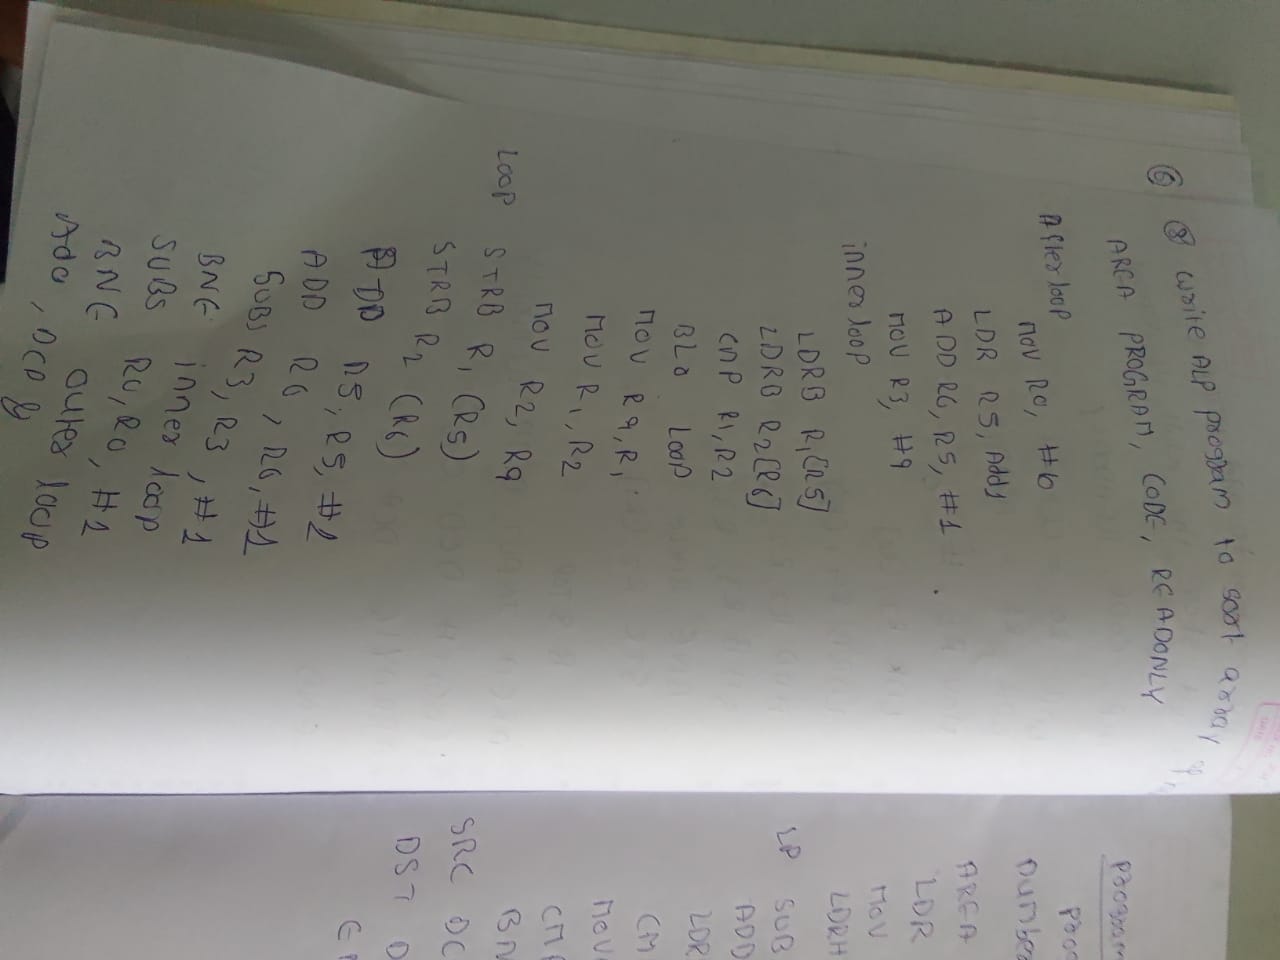 ⑥ ⑧ write ALP program to sort array
AREA PROGRAM, CODE, READONLY
MOV R0, #6
LDR R5, Adds
ADD R6, R5, #1
MOV R3, #9
inner loop
LDRB R1 [R5]
LDRB R2 [R6]
CMP R1, R2
BLO LOOP
MOV R9, R1
MOV R1, R2
MOV R2, R9
LOOP STRB R1 (R5)
STRB R2 (R6)
ADD R5, R5, #1
ADD R6, R6, #1
SUBS R3, R3, #1
BNE inner loop
SUBS R0, R0, #1
BNE outer loop
program
Numbe
AREA
LDR
MOV
LDRH
LP SUB
ADD
LDR
CM
MOV
CM
BN
SRC DC
DST D